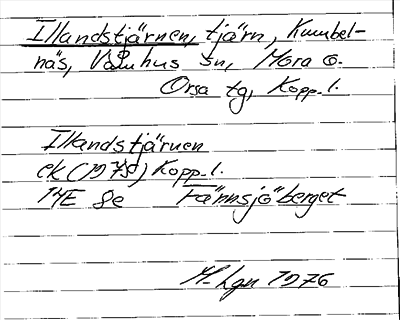 Illandstjärnen, tjärn, Kumbel-
näs, Våmhus sn, Mora o.
Orsa tg, Kopp. l.
Illandstjärnen
ek (1975) Kopp. l.
14E 8e Fännsjöberget
M-Lgn 1976